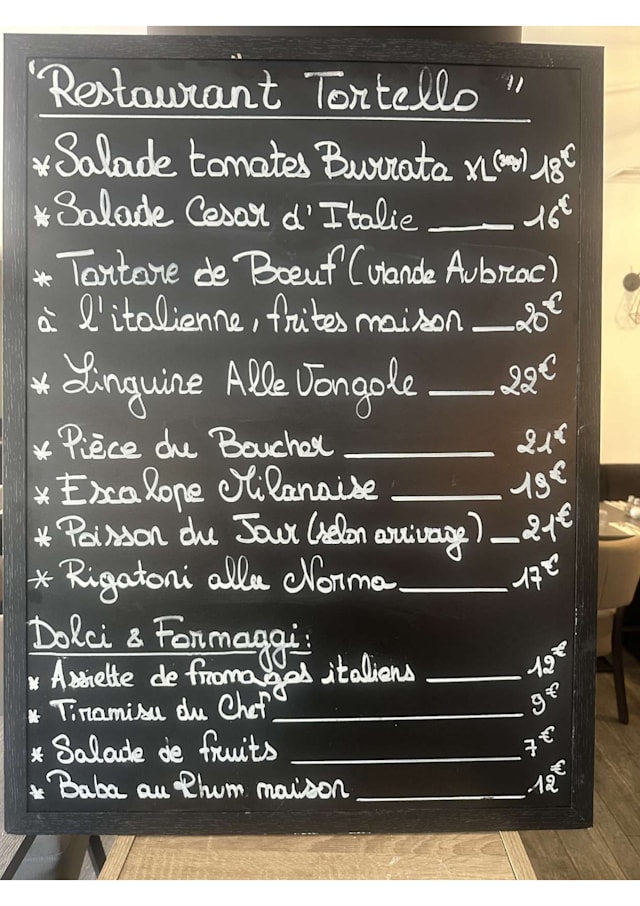 "Restaurant Tortello"
* Salade tomates Burrata XL 18€
* Salade Cesar d'Italie 16€
* Tartare de Bœuf (viande Aubrac)
à l'italienne, frites maison 20€
* Linguine Alle Vongole 22€
* Pièce du Boucher 21€
* Escalope Milanaise 19€
* Poisson du Jour (selon arrivage) 21€
* Rigatoni alla Norma 17€
Dolci & Formaggi:
* Assiette de fromages italiens 12€
* Tiramisu du Chef 9€
* Salade de fruits 7€
* Baba au Rhum maison 12€